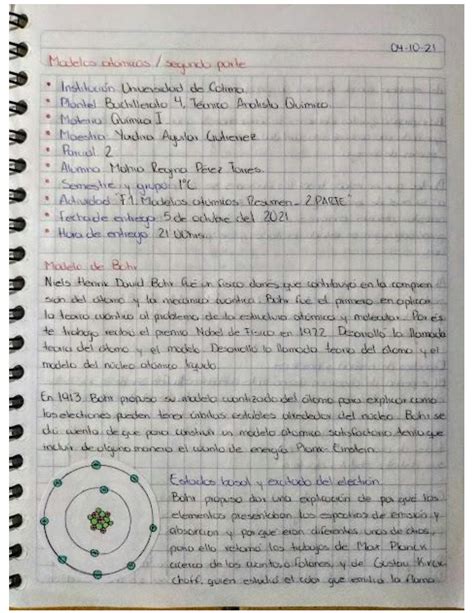 04-10-21
Modelos atómicos / segunda parte
• Institución Universidad de Colima
• Plantel Bachillerato 4, Técnico Analista Químico
• Materia Química I
• Maestra Yadira Aguilar Gutierrez
• Parcial 2
• Alumna Reyna Pérez Torres.
• Semestre y grupo: 1°C
• Actividad "F1. Modelos atómicos. Resumen - 2 PARTE"
• Fecha de entrega 5 de octubre del 2021
• Hora de entrega 21:00hrs.
Modelo de Bohr
Niels Henrik David Bohr fue un físico danés que contribuyó en la compren
sión del átomo y la mecánica cuántica. Bohr fue el primero en aplicar
la teoría cuántica al problema de la estructura atómica y molecular. Por es
te trabajo recibió el premio Nobel de Física en 1922. Desarrolló la llamada
teoría del átomo y el modelo Desarrollo la llamada teoría del átomo y el
modelo del núcleo atómico líquido.
En 1913, Bohr propuso su modelo cuantizado del átomo para explicar como
los electrones pueden tener órbitas estables alrededor del núcleo. Bohr se
dio cuenta de que para construir un modelo atómico satisfactorio tenía que
incluir de alguna manera el cuanto de energía Planck-Einstein.
Estados basal y excitado del electrón.
Bohr propuso dar una explicación de por qué los
elementos presentaban los espectros de emisión y
absorción y por qué eran diferentes unos de otros,
para ello retomó los trabajos de Max Planck
acerca de los cuantos o fotones, y de Gustav Kirch
choff, quien estudió el color que emitía la flama